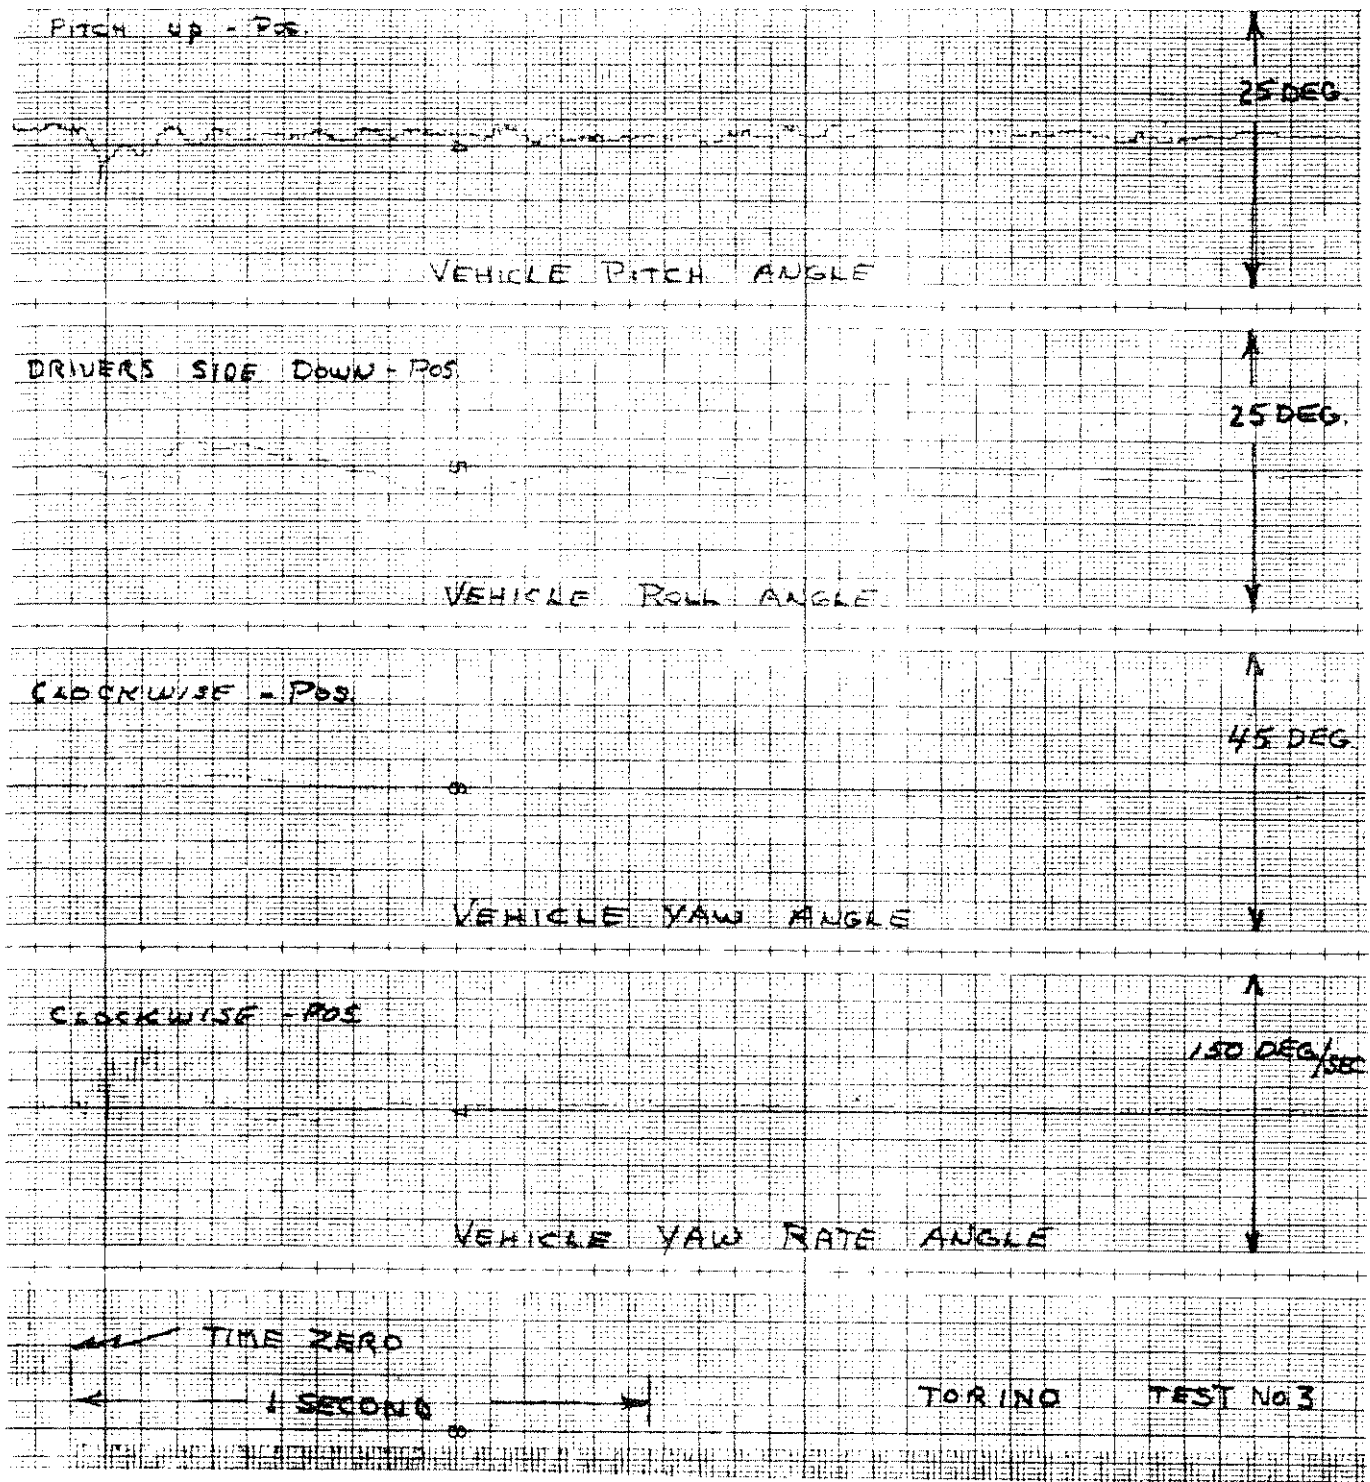 PITCH UP - POS.
25 DEG.
VEHICLE PITCH ANGLE
DRIVERS SIDE DOWN - POS
25 DEG.
5
VEHICLE ROLL ANGLE
CLOCKWISE - POS.
45 DEG
VEHICLE YAW ANGLE
CLOCKWISE - POS
150 DEG/SEC
VEHICLE YAW RATE ANGLE
TIME ZERO
1 SECOND
TORINO TEST NO.3
8